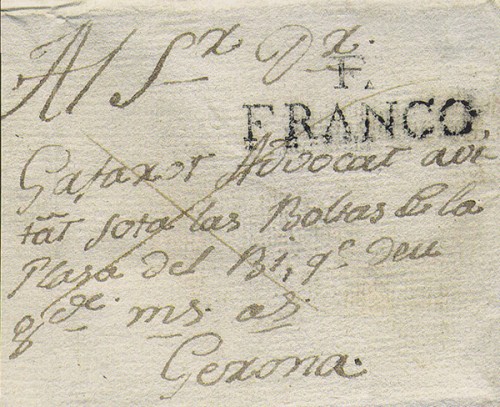 Al Sr Dr.
F.
FRANCO,
Gafarot Advocat avi
tãt sota las Boltas de la
Plasa del Bi, qe. Deu
gde. ms. as.
Gerona.